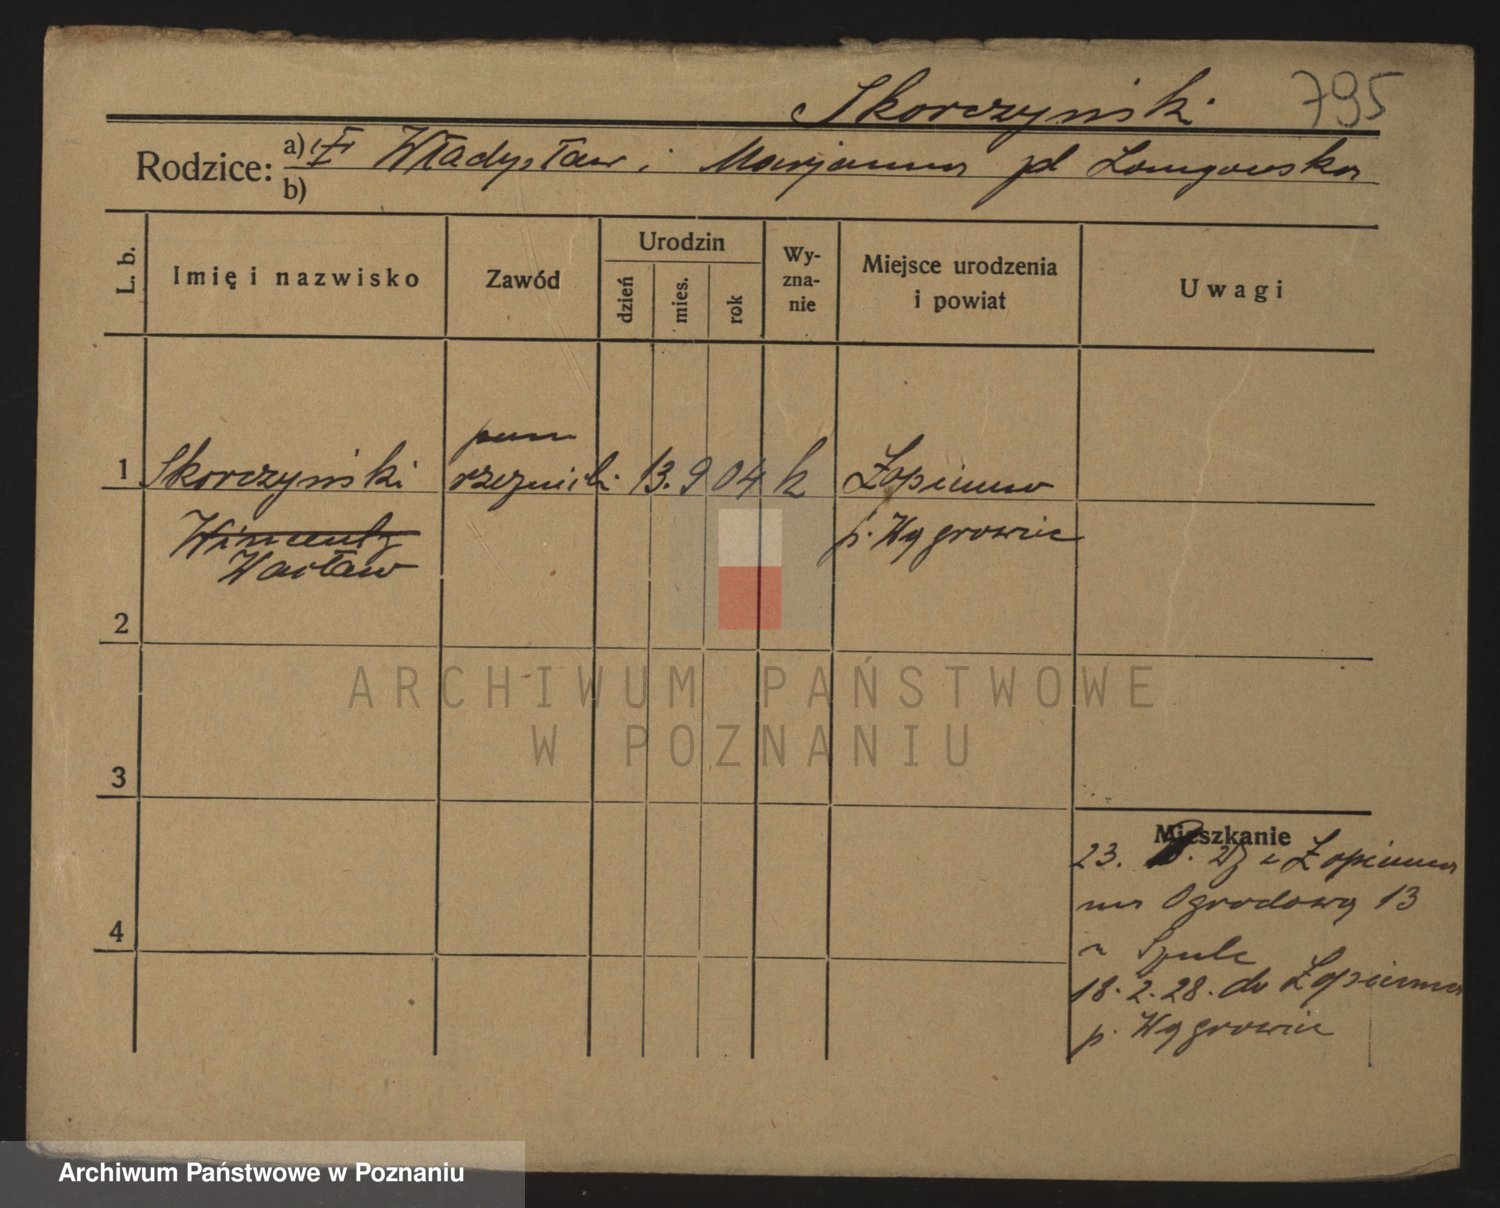 Skorczyński 795
Rodzice: a) Władysław i Marjanna
b)
L. b.
Imię i nazwisko
Zawód
Urodzin
dzień
mies.
rok
Wy-
zna-
nie
Miejsce urodzenia
i powiat
Uwagi
pom
1 Skorczyński rzeźnicki 13. 9 04 k Łopienno
Wincenty p. Wągrowiec
Wacław
2
3
4
Mieszkanie
23. z Łopienna
na Ogrodową 13
18. 2. 28. do Łopienna
p. Wągrowiec
ARCHIWUM PAŃSTWOWE
W POZNANIU
Archiwum Państwowe w Poznaniu